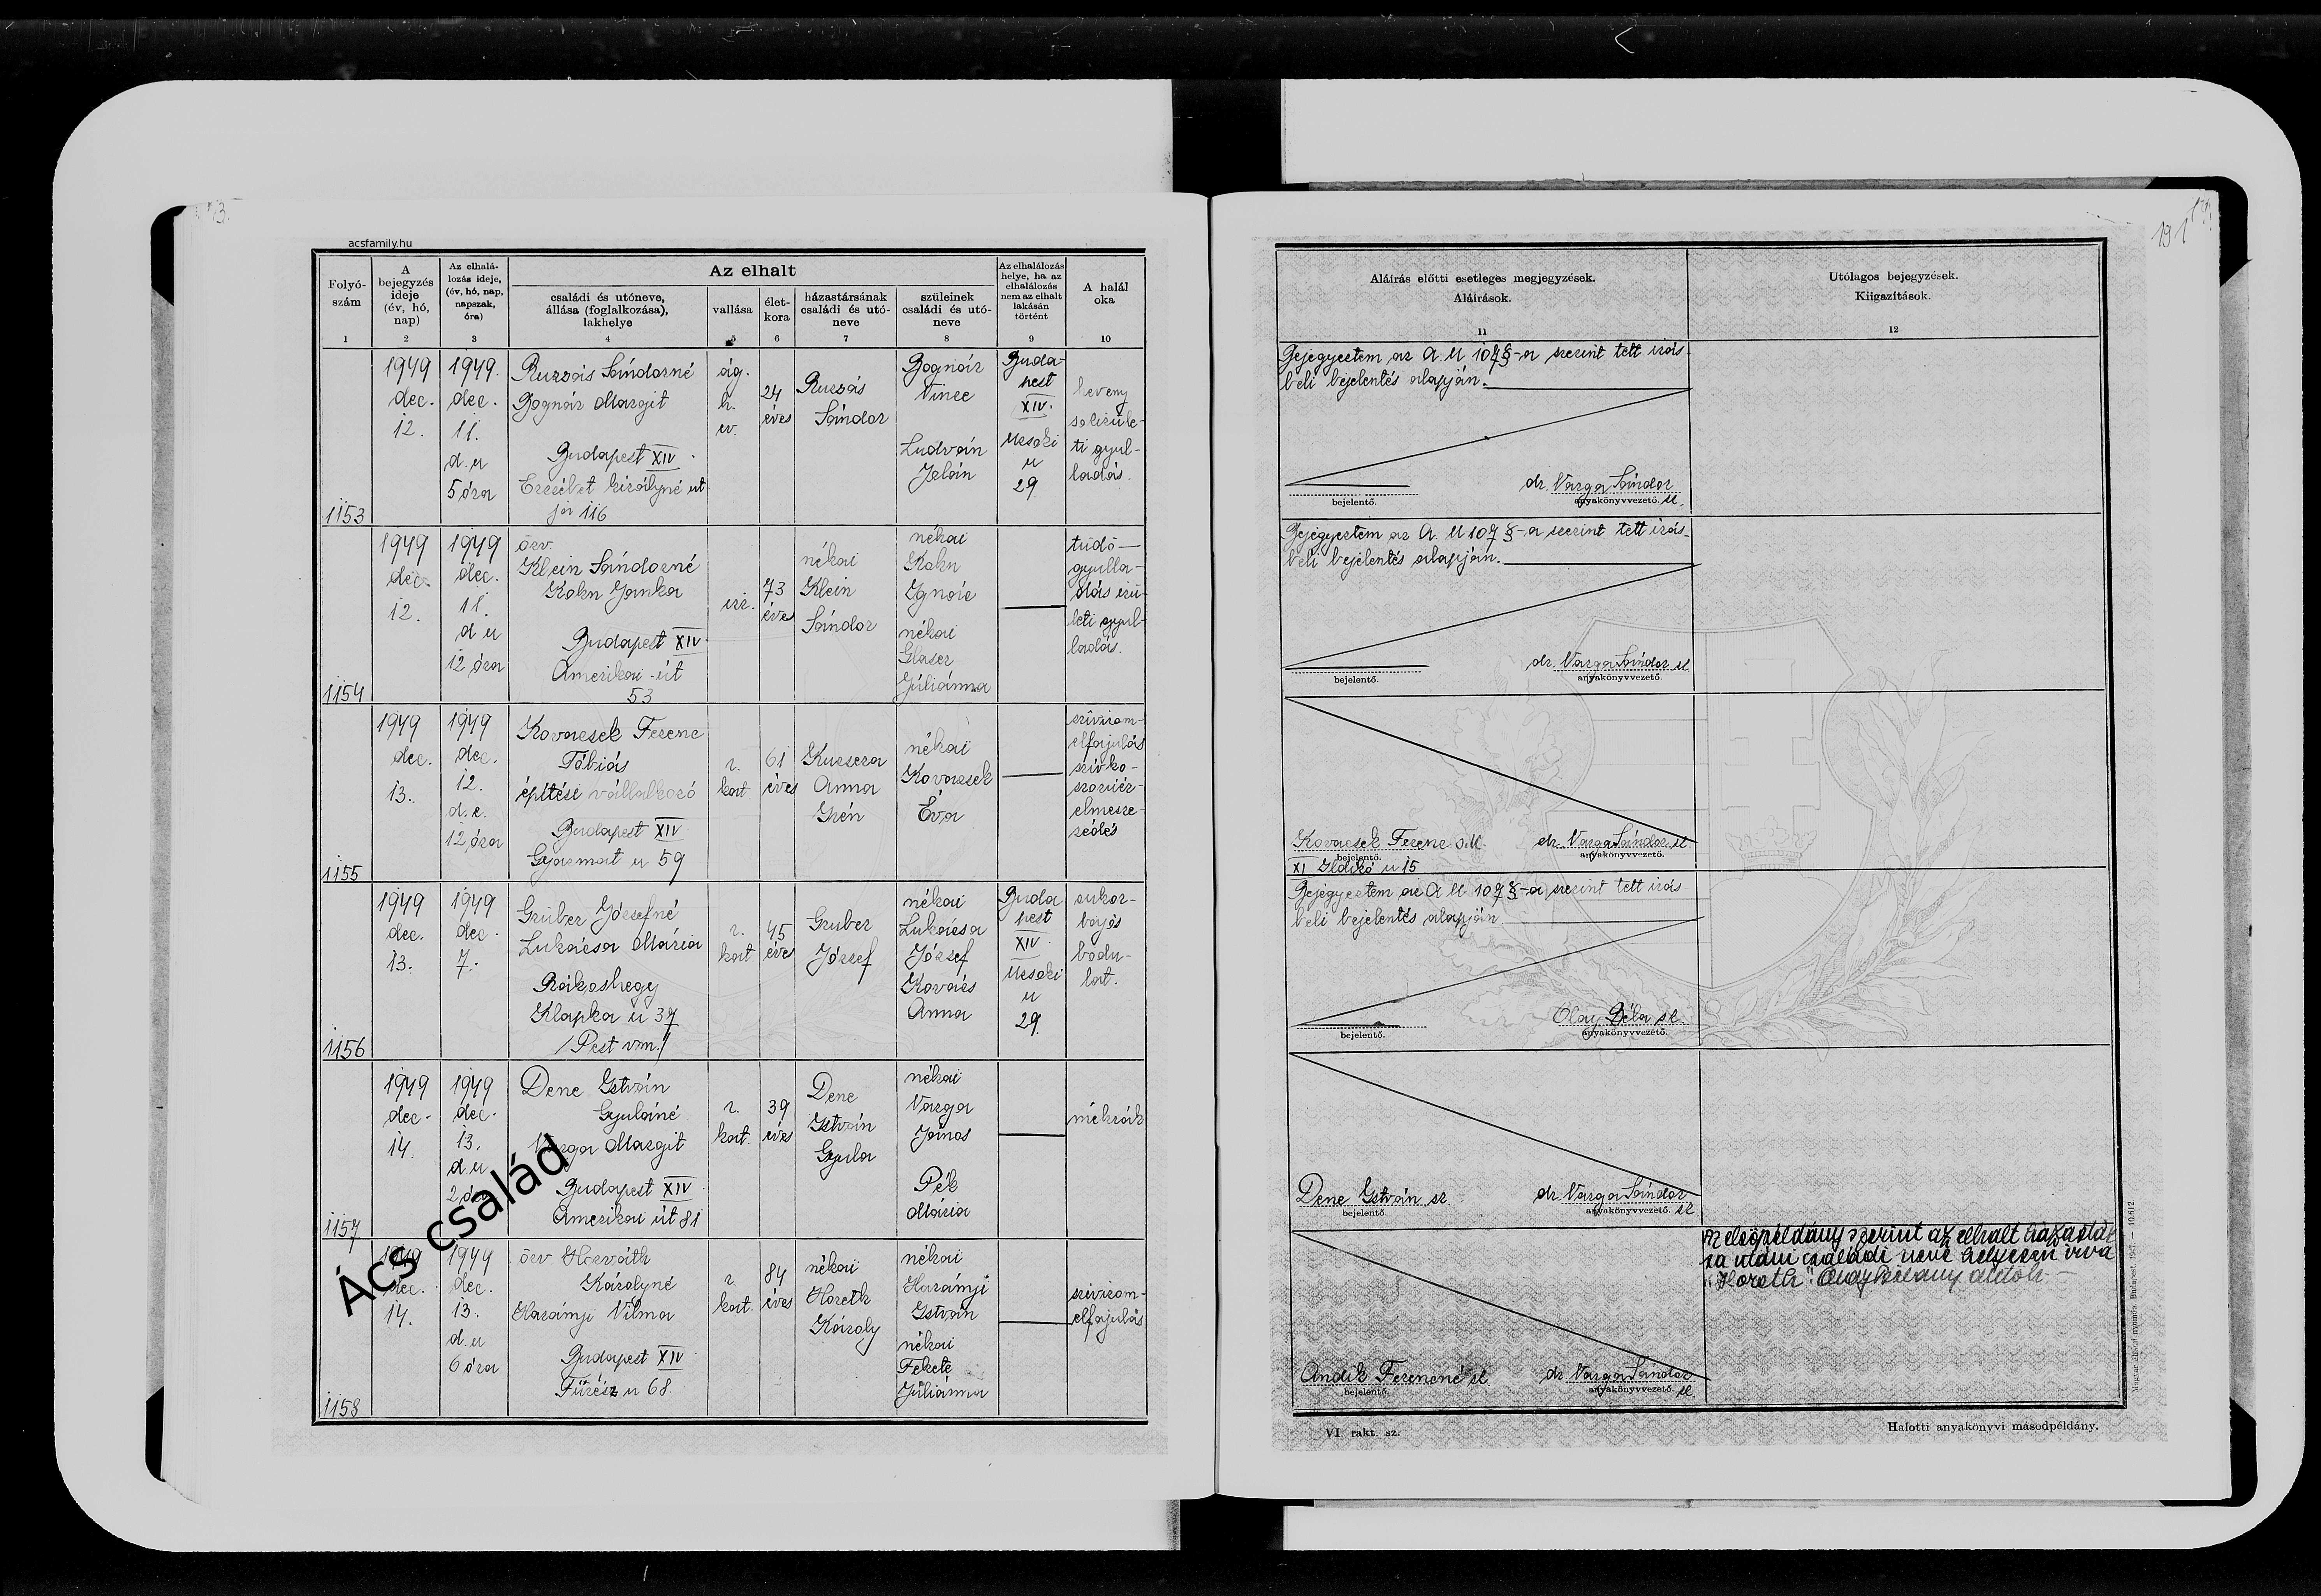 acsfamily.hu
Folyó-
szám
A
bejegyzés
ideje
(év, hó,
nap)
Az elhalá-
lozás ideje,
(év, hó, nap,
napszak,
óra)
Az elhalt
családi és utóneve,
állása (foglalkozása),
lakhelye
vallása
élet-
kora
házastársának
családi és utó-
neve
szüleinek
családi és utó-
neve
Az elhalálozás
helye, ha az
elhalálozás
nem az elhalt
lakásán
történt
A halál
oka
1 2 3 4 5 6 7 8 9 10
1153
1949
dec.
12.
1949.
dec.
11.
d.u
5 óra
Ruzsás Sándorné
Bognár Margit
Budapest XIV.
Erzsébet királyné út-
ja 116
ág.
h.
ev.
24
éves
Ruzsás
Sándor
Bognár
Vince
Ludván
Jelán
Buda-
pest
XIV.
Uzsoki
u
29
heveny
ti gyul-
ladás.
1154
1949
dec.
12.
1949
dec.
11.
d u
12 óra
özv.
Klein Sándorné
Kohn Janka
Budapest XIV.
Amerikai-út
53
izr.
73
éves
néhai
Klein
Sándor
néhai
Kohn
Ignác
néhai
Glaser
Júliánna
tüdő-
gyulla-
dás izü-
leti gyul-
ladás.
1155
1949
dec.
13.
1949
dec.
12.
d.e.
12 óra
Kovacsek Ferenc
Tóbiás
építési vállalkozó
Budapest XIV.
Gyarmat u 59
r.
kat
61
éves
Kucsera
Anna
Irén
néhai
Kovacsek
Éva
szívizom-
elfajulás
szívko-
szorúér-
elmesze-
sedés
1156
1949
dec.
13.
1949
dec.
7.
Gruber Józsefné
Lukácsa Mária
Rákoshegy
Klapka u 37
/Pest vm./
r.
kat
45
éves
Gruber
József
néhai
Lukácsa
József
Kovács
Anna
Buda
pest
XIV.
Uzsoki
u
29.
cukor-
bajos
bódu-
lat.
1157
1949
dec.
14.
1949
dec.
13.
d.u
2 óra
Dene István
Gyuláné
Varga Margit
Budapest XIV.
Amerikai út 81
r.
kat.
39
éves
Dene
István
Gyula
néhai
Varga
János
Pék
Mária
méhrák
1158
1949
dec.
14.
1949
dec.
13.
d.u
6 óra
özv Horváth
Károlyné
Harámji Vilma
Budapest XIV.
Fűrész u 68.
r.
kat.
84
éves
néhai
Horeth
Károly
néhai
Harámji
István
néhai
Fekete
Júliánna
szívizom-
elfajulás
Ács család
191
Aláírás előtti esetleges megjegyzések.
Aláírások.
11
Utólagos bejegyzések.
Kiigazítások.
12
Bejegyeztem az A. U 107§-a szerint tett irás-
beli bejelentés alapján.
dr. Varga Sándor
bejelentő. anyakönyvvezető. sk.
Bejegyeztem az A. U 107 §-a szerint tett irás-
beli bejelentés alapján.
dr. Varga Sándor sk
bejelentő. anyakönyvvezető.
Kovacsek Ferenc s.k. dr. Varga Sándor sk
bejelentő. anyakönyvvezető.
XI Ildikó u 15
Bejegyeztem az A U 107 §-a szerint tett irás
beli bejelentés alapján
Olay Béla sk.
bejelentő. anyakönyvvezető.
Dene István sk. dr. Varga Sándor
bejelentő. anyakönyvvezető. sk
Az elsőpéldány szerint az elhalt házastár-
sa utáni családi neve helyesen irva
"Horeth".
Andik Ferencné sk dr Varga Sándor
bejelentő. anyakönyvvezető. sk
VI. rakt. sz.
Halotti anyakönyvi másodpéldány.
Magyar állami nyomda. Budapest. 1947. — 10.612.